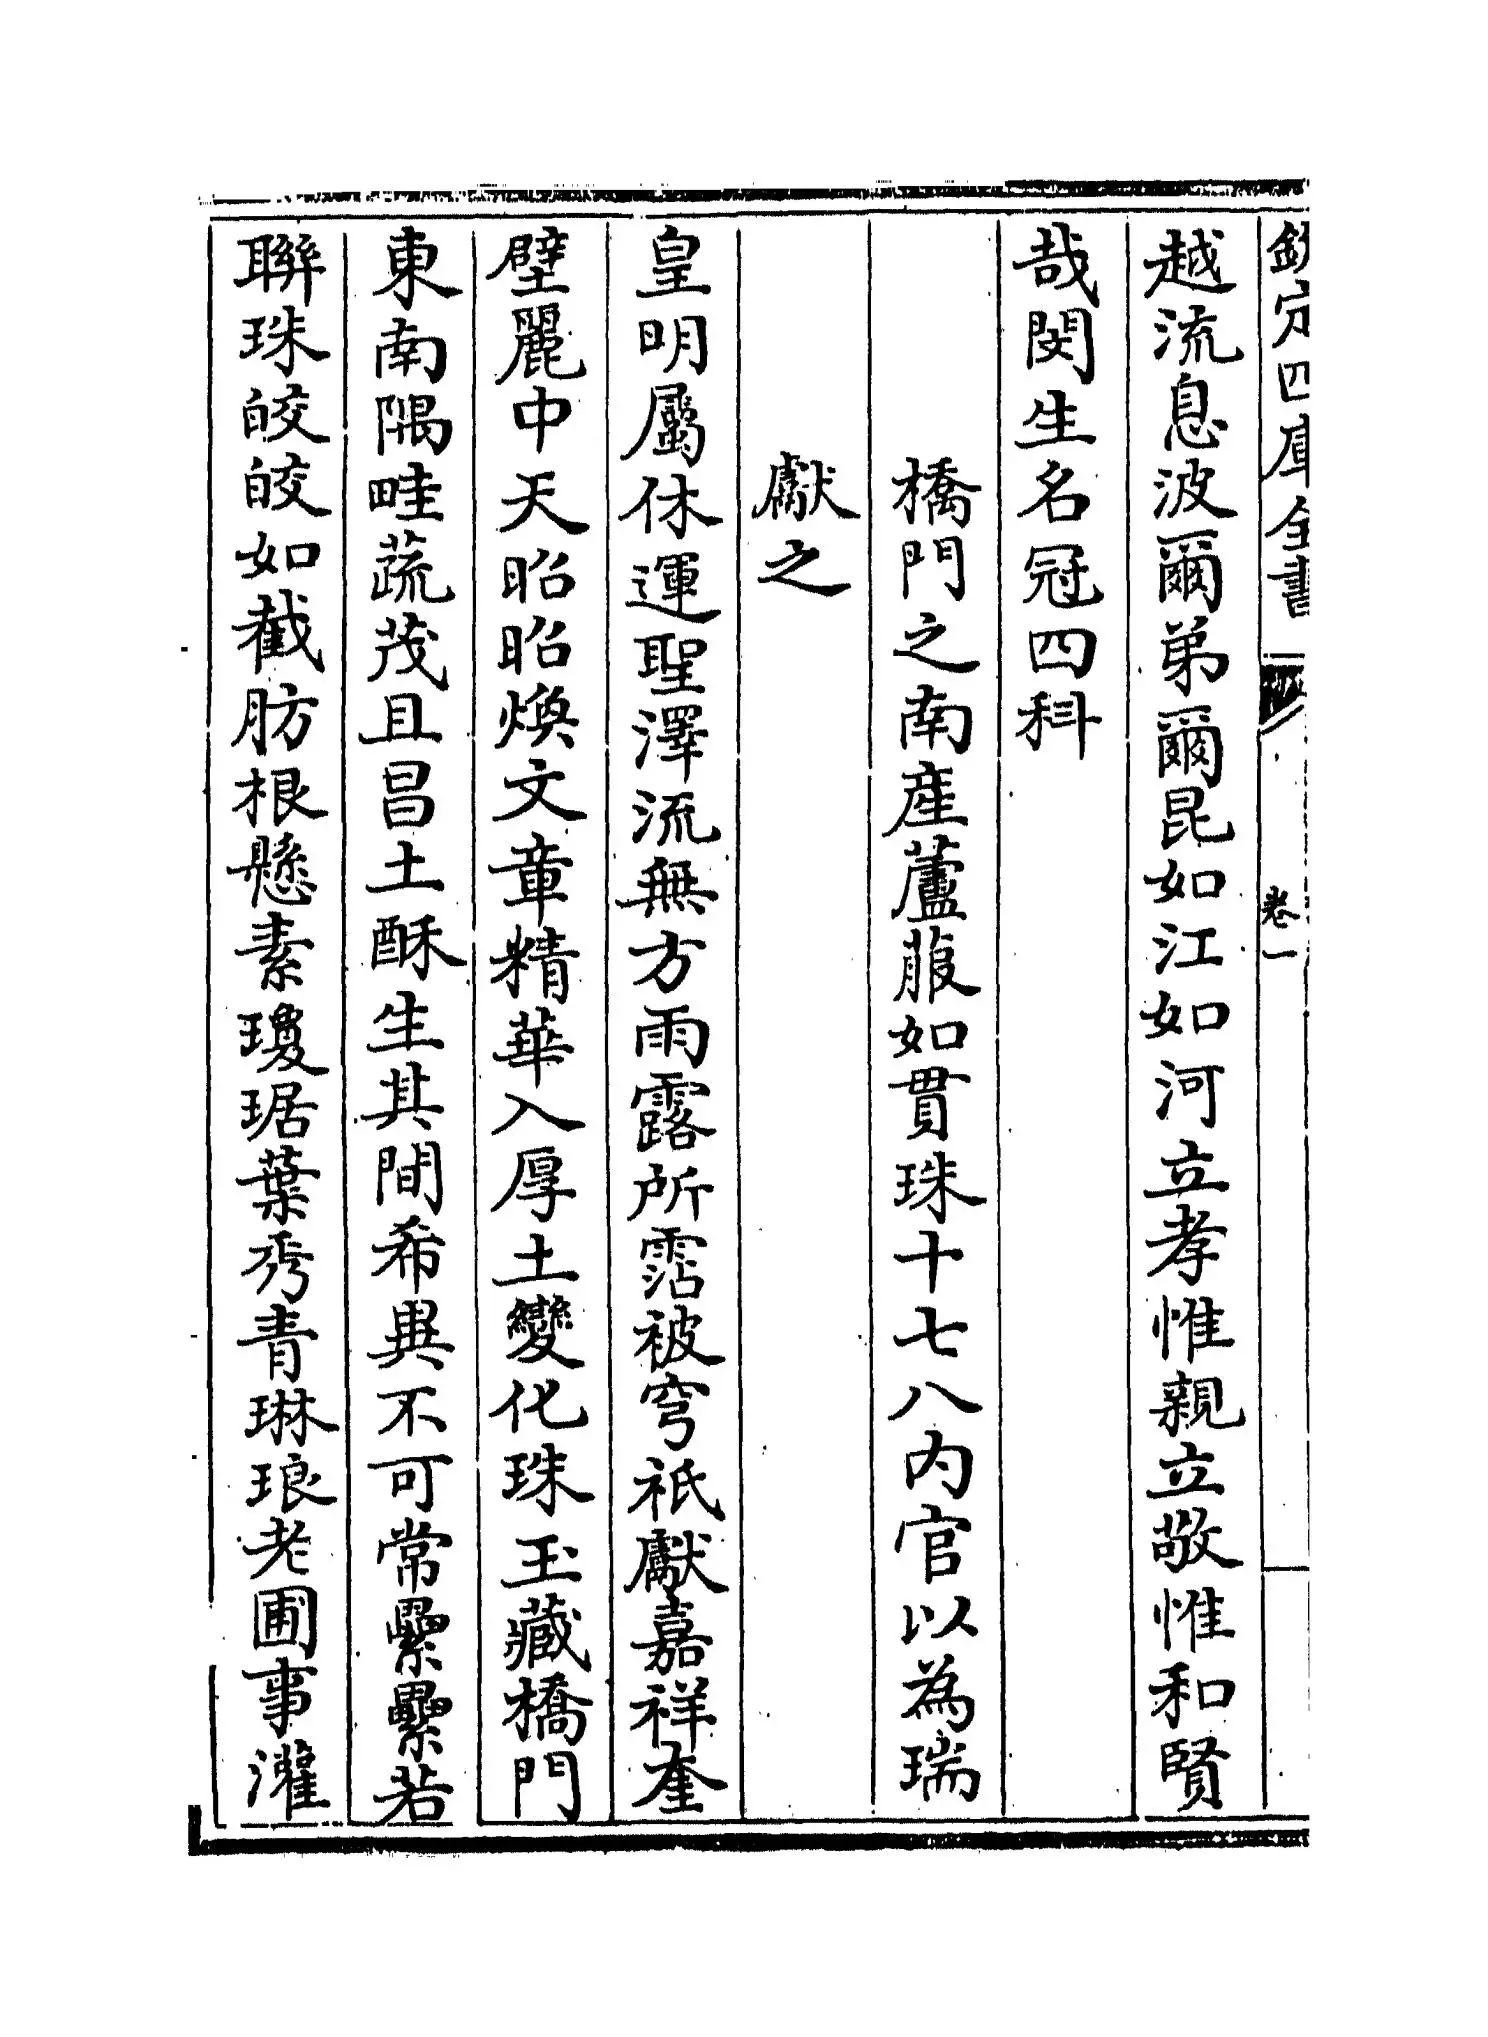 欽定四庫全書
卷一
越流息波爾弟爾昆如江如河立孝惟親立敬惟和賢
哉閔生名冠四科
橋門之南産蘆菔如貫珠十七八内官以為瑞
獻之
皇明屬休運聖澤流無方雨露所霑被穹祇獻嘉祥奎
壁麗中天昭昭煥文章精華入厚土變化珠玉藏橋門
東南隅畦蔬茂且昌土酥生其間希異不可常纍纍若
聯珠皎皎如截肪根懸素瓊琚葉秀青琳琅老圃事灌